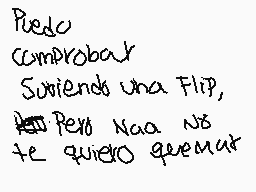 Puedo
comprobar
Subiendo una Flip,
Pero Naa No
te quiero quemar